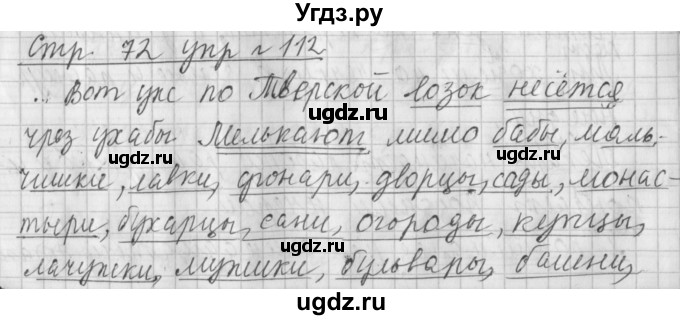 Угдз.ру
Стр. 72 упр № 112
... Вот уж по Тверской возок несётся
чрез ухабы Мелькают мимо бабы, маль-
чишкие, лавки, фонари, дворцы, сады, монас-
тыри, бухарцы, сани, огороды, купцы,
лачужки, мужики, бульвары, башени,
ugdz.ru
ugdz.ru
ugdz.ru
ugdz.ru
ugdz.ru
ugdz.ru
ugdz.ru
ugdz.ru